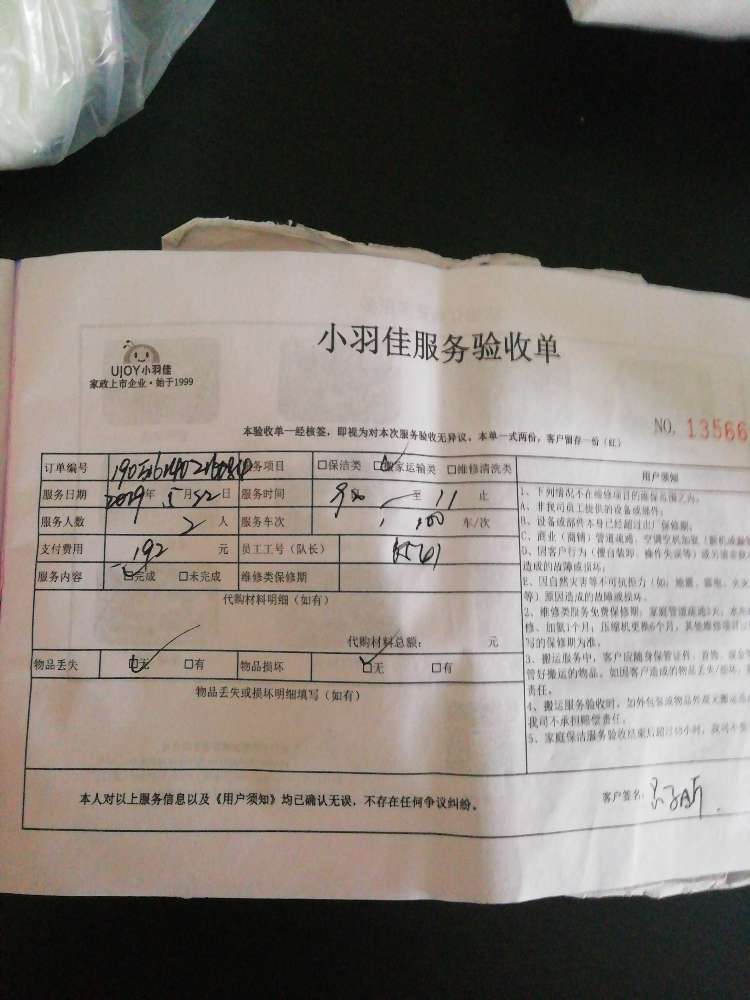 小羽佳服务验收单
UJOY小羽佳
家政上市企业·始于1999
本验收单一经核签，即视为对本次服务验收无异议。本单一式两份，客户留存一份（红）
NO. 13566
订单编号 服务项目 □保洁类 □搬家运输类 □维修清洗类
用户须知
服务日期 2019年 5月22日 服务时间 9 至 11 止
服务人数 2 人 服务车次 车/次
支付费用 192 元 员工工号（队长）
服务内容 □完成 □未完成 维修类保修期
代购材料明细（如有）
代购材料总额： 元
物品丢失 □无 □有 物品损坏 □无 □有
物品丢失或损坏明细填写（如有）
1、下列情况不在维修项目的
A、非我司员工提供的设备或部件；
B、设备或部件本身已经超过出厂保修期；
C、商业（商铺）管道疏通、空调空机加氨
D、因客户行为（擅自装卸、操作失误等）或
造成的故障或损坏；
E、因自然灾害等不可抗力（如：地震、雷电、
等）原因造成的故障或损坏。
2、维修类服务免费保修期：家庭管道疏通
修、加氨1个月；压缩机更换6个月，其他维修项目
写的保修期为准。
3、搬运服务中，客户应随身保管证件、首饰、
管好搬运的物品。如因客户造成的物品丢失/损坏，
责任。
4、搬运服务验收时，如外包装或物品外观无
我司不承担赔偿责任。
5、家庭保洁服务验收结束后超过48小时，我司不
本人对以上服务信息以及《用户须知》均已确认无误，不存在任何争议纠纷。
客户签名：